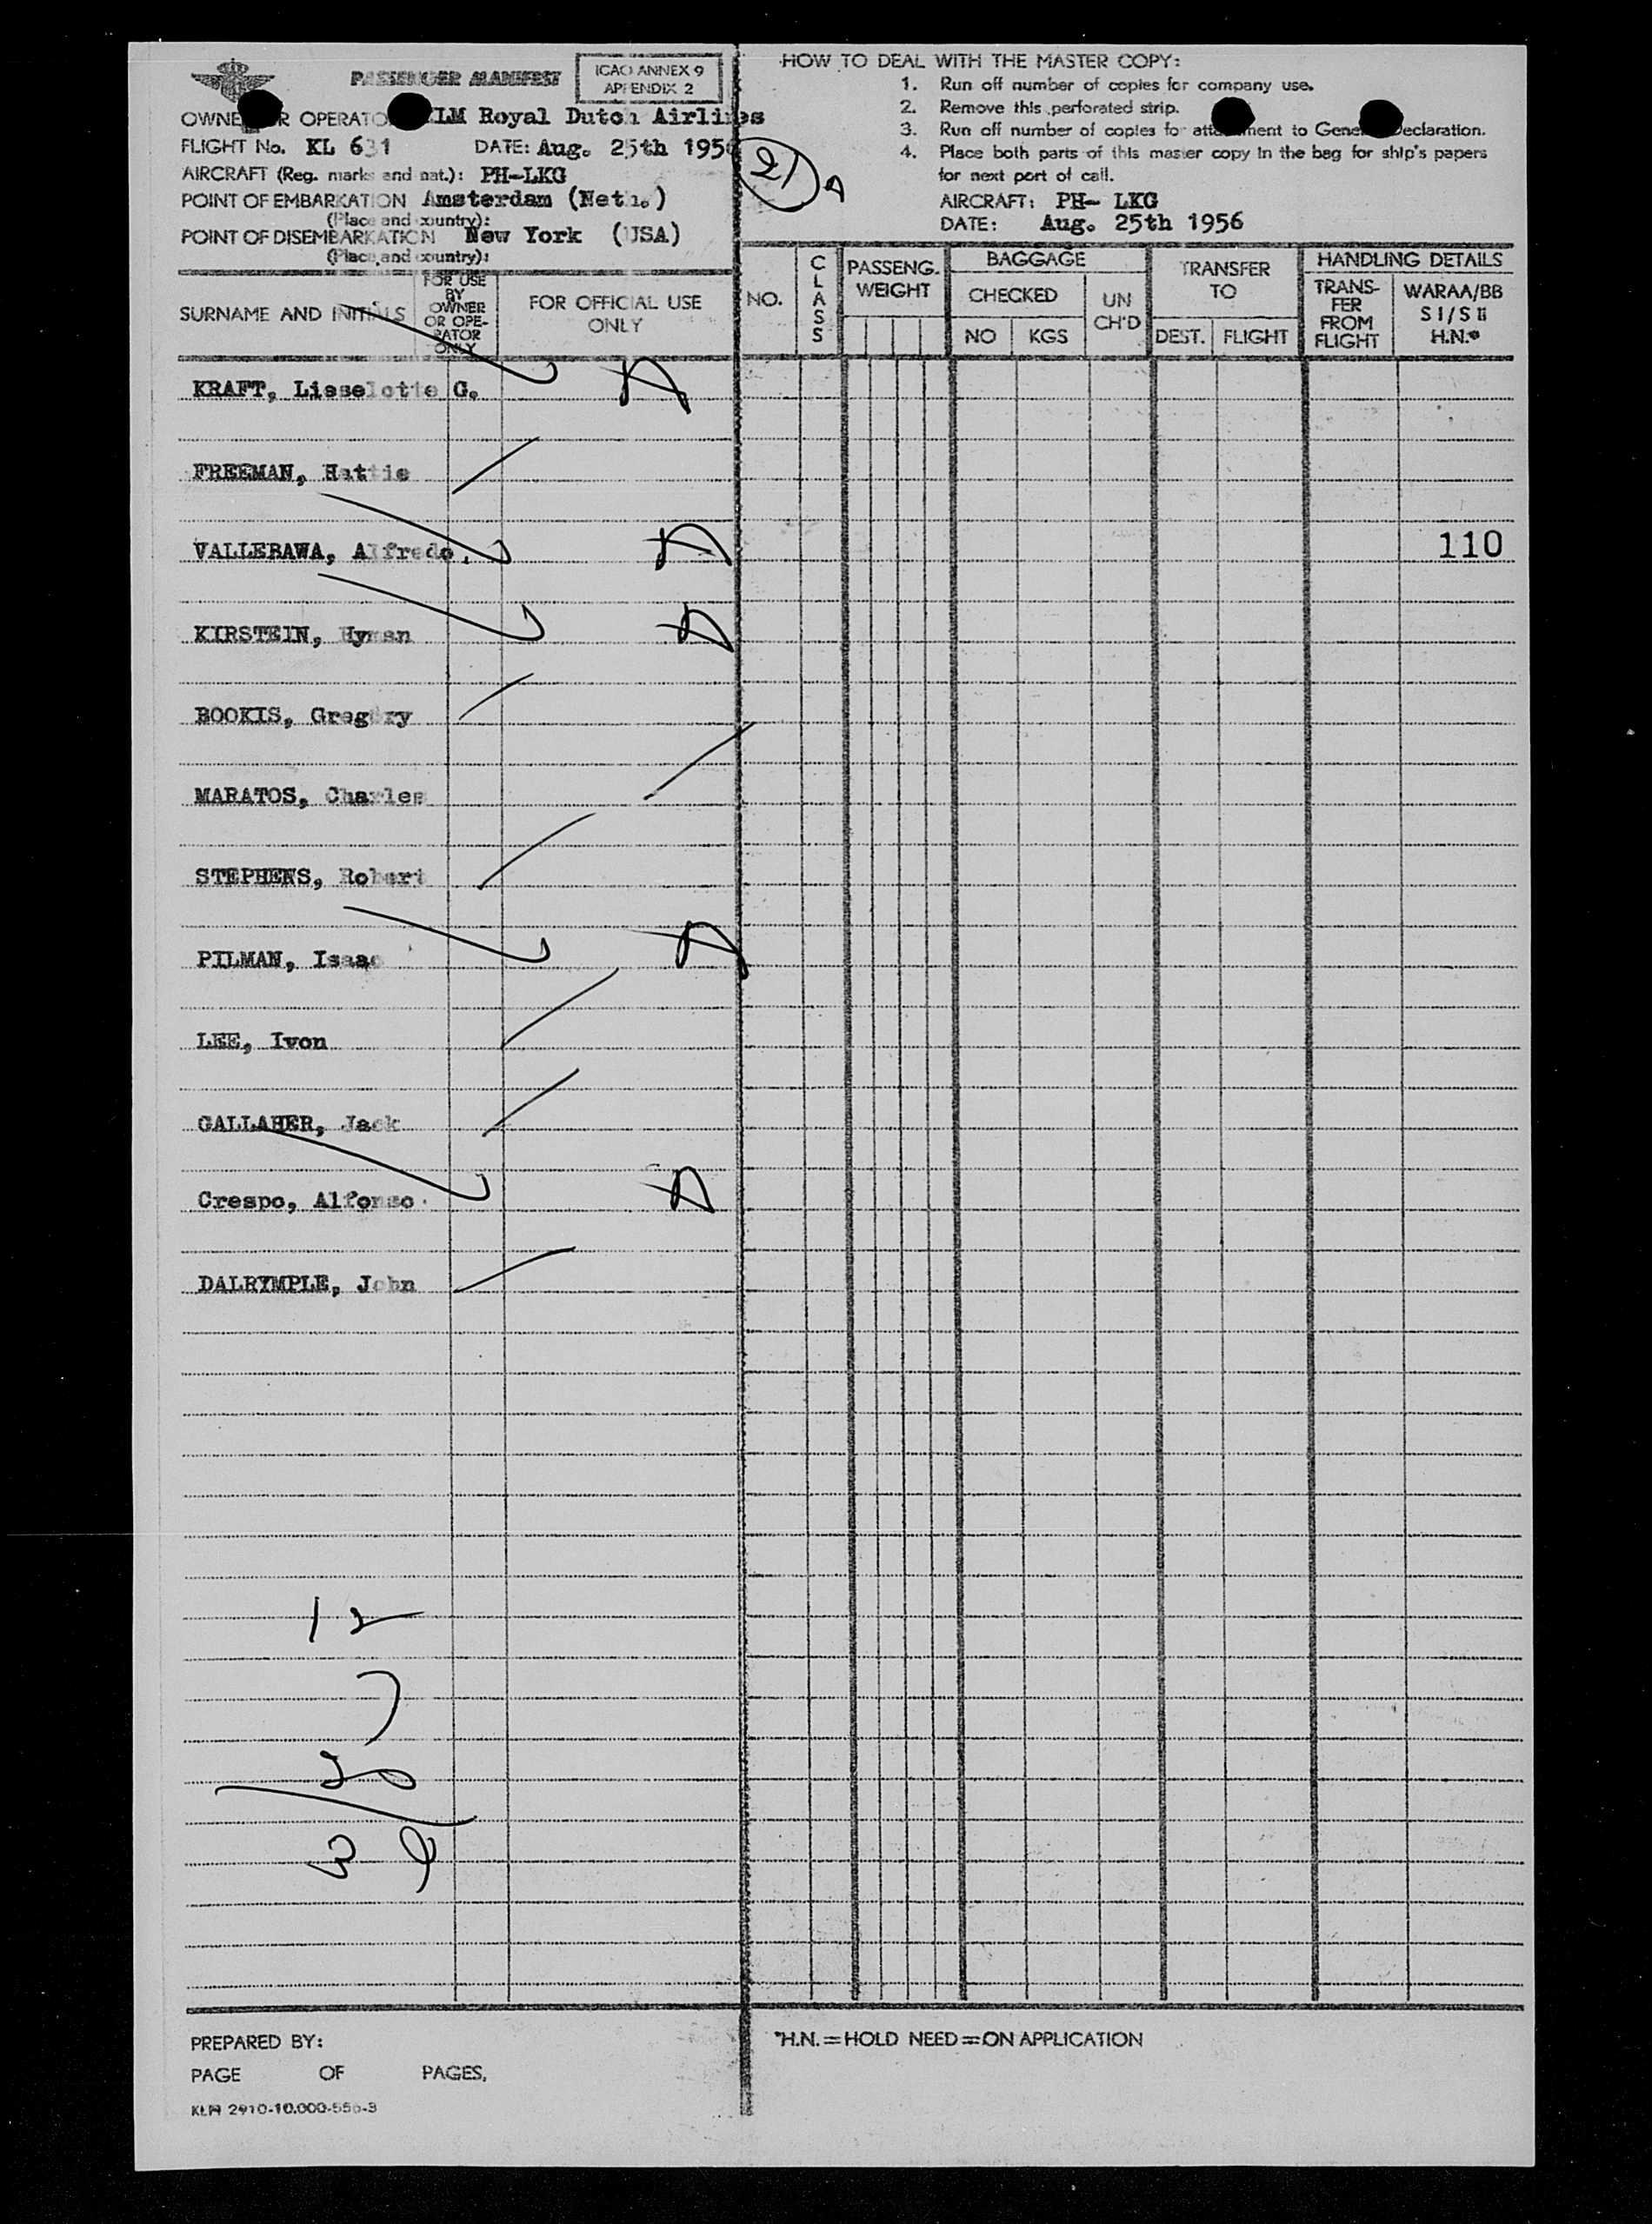 PASSENGER MANIFEST
ICAO ANNEX 9
APPENDIX 2
OWNER OR OPERATOR KLM Royal Dutch Airlines
FLIGHT No. KL 631 DATE: Aug. 25th 1956
AIRCRAFT (Reg. marks and nat.): PH-LKG
POINT OF EMBARKATION Amsterdam (Neth.)
(Place and country):
POINT OF DISEMBARKATION New York (USA)
(Place and country):
HOW TO DEAL WITH THE MASTER COPY:
1. Run off number of copies for company use.
2. Remove this perforated strip.
3. Run off number of copies for attachment to General Declaration.
4. Place both parts of this master copy in the bag for ship's papers
for next port of call.
21
AIRCRAFT: PH- LKG
DATE: Aug. 25th 1956
SURNAME AND INITIALS
FOR USE
BY
OWNER
OR OPE-
RATOR
ONLY
FOR OFFICIAL USE
ONLY
NO.
CLASS
PASSENG.
WEIGHT
BAGGAGE
CHECKED
NO KGS
UN
CH'D
TRANSFER
TO
DEST. FLIGHT
HANDLING DETAILS
TRANS-
FER
FROM
FLIGHT
WARAA/BB
S I / S II
H.N.*
KRAFT, Lieselotte G.
FREEMAN, Hattie
VALLERAWA, Alfredo. 110
KIRSTEIN, Hyman
BOOKIS, Gregory
MARATOS, Charles
STEPHENS, Robert
PILMAN, Isaac
LEE, Ivon
GALLAHER, Jack
Crespo, Alfonso
DALRYMPLE, John
12
7
20
39
PREPARED BY:
PAGE OF PAGES,
*H.N. = HOLD NEED = ON APPLICATION